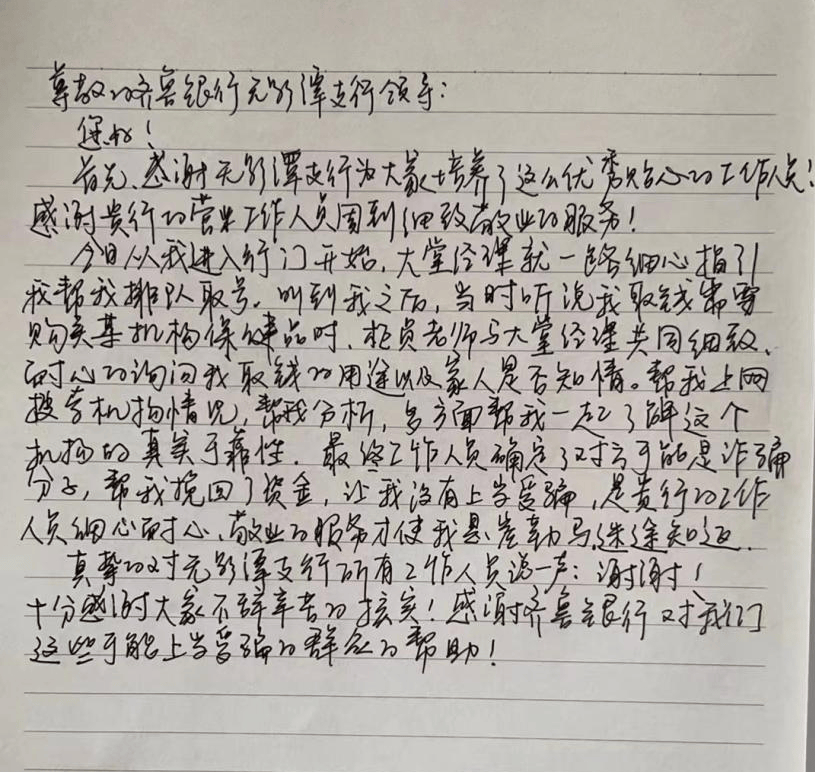 尊敬的齐鲁银行无影潭支行领导：
您好！
首先、感谢无影潭支行为大家培养了这么优秀贴心的工作人员！
感谢贵行的营业工作人员周到细致敬业的服务！
今日从我进入行门开始，大堂经理就一路细心指引
我帮我排队取号。叫到我之后，当时听说我取钱需要
购买某机构保健品时、柜员老师与大堂经理共同细致、
耐心的询问我取钱的用途以及家人是否知情。帮我上网
搜索机构情况，帮我分析，多方面帮我一起了解这个
机构的真实可靠性．最终工作人员确定了对方可能是诈骗
分子，帮我挽回了资金，让我没有上当受骗，是贵行的工作
人员细心耐心、敬业的服务才使我悬崖勒马迷途知返．
真挚的对无影潭支行所有工作人员说一声：谢谢！
十分感谢大家不辞辛苦的核实！感谢齐鲁银行对我们
这些可能上当受骗的群众的帮助！